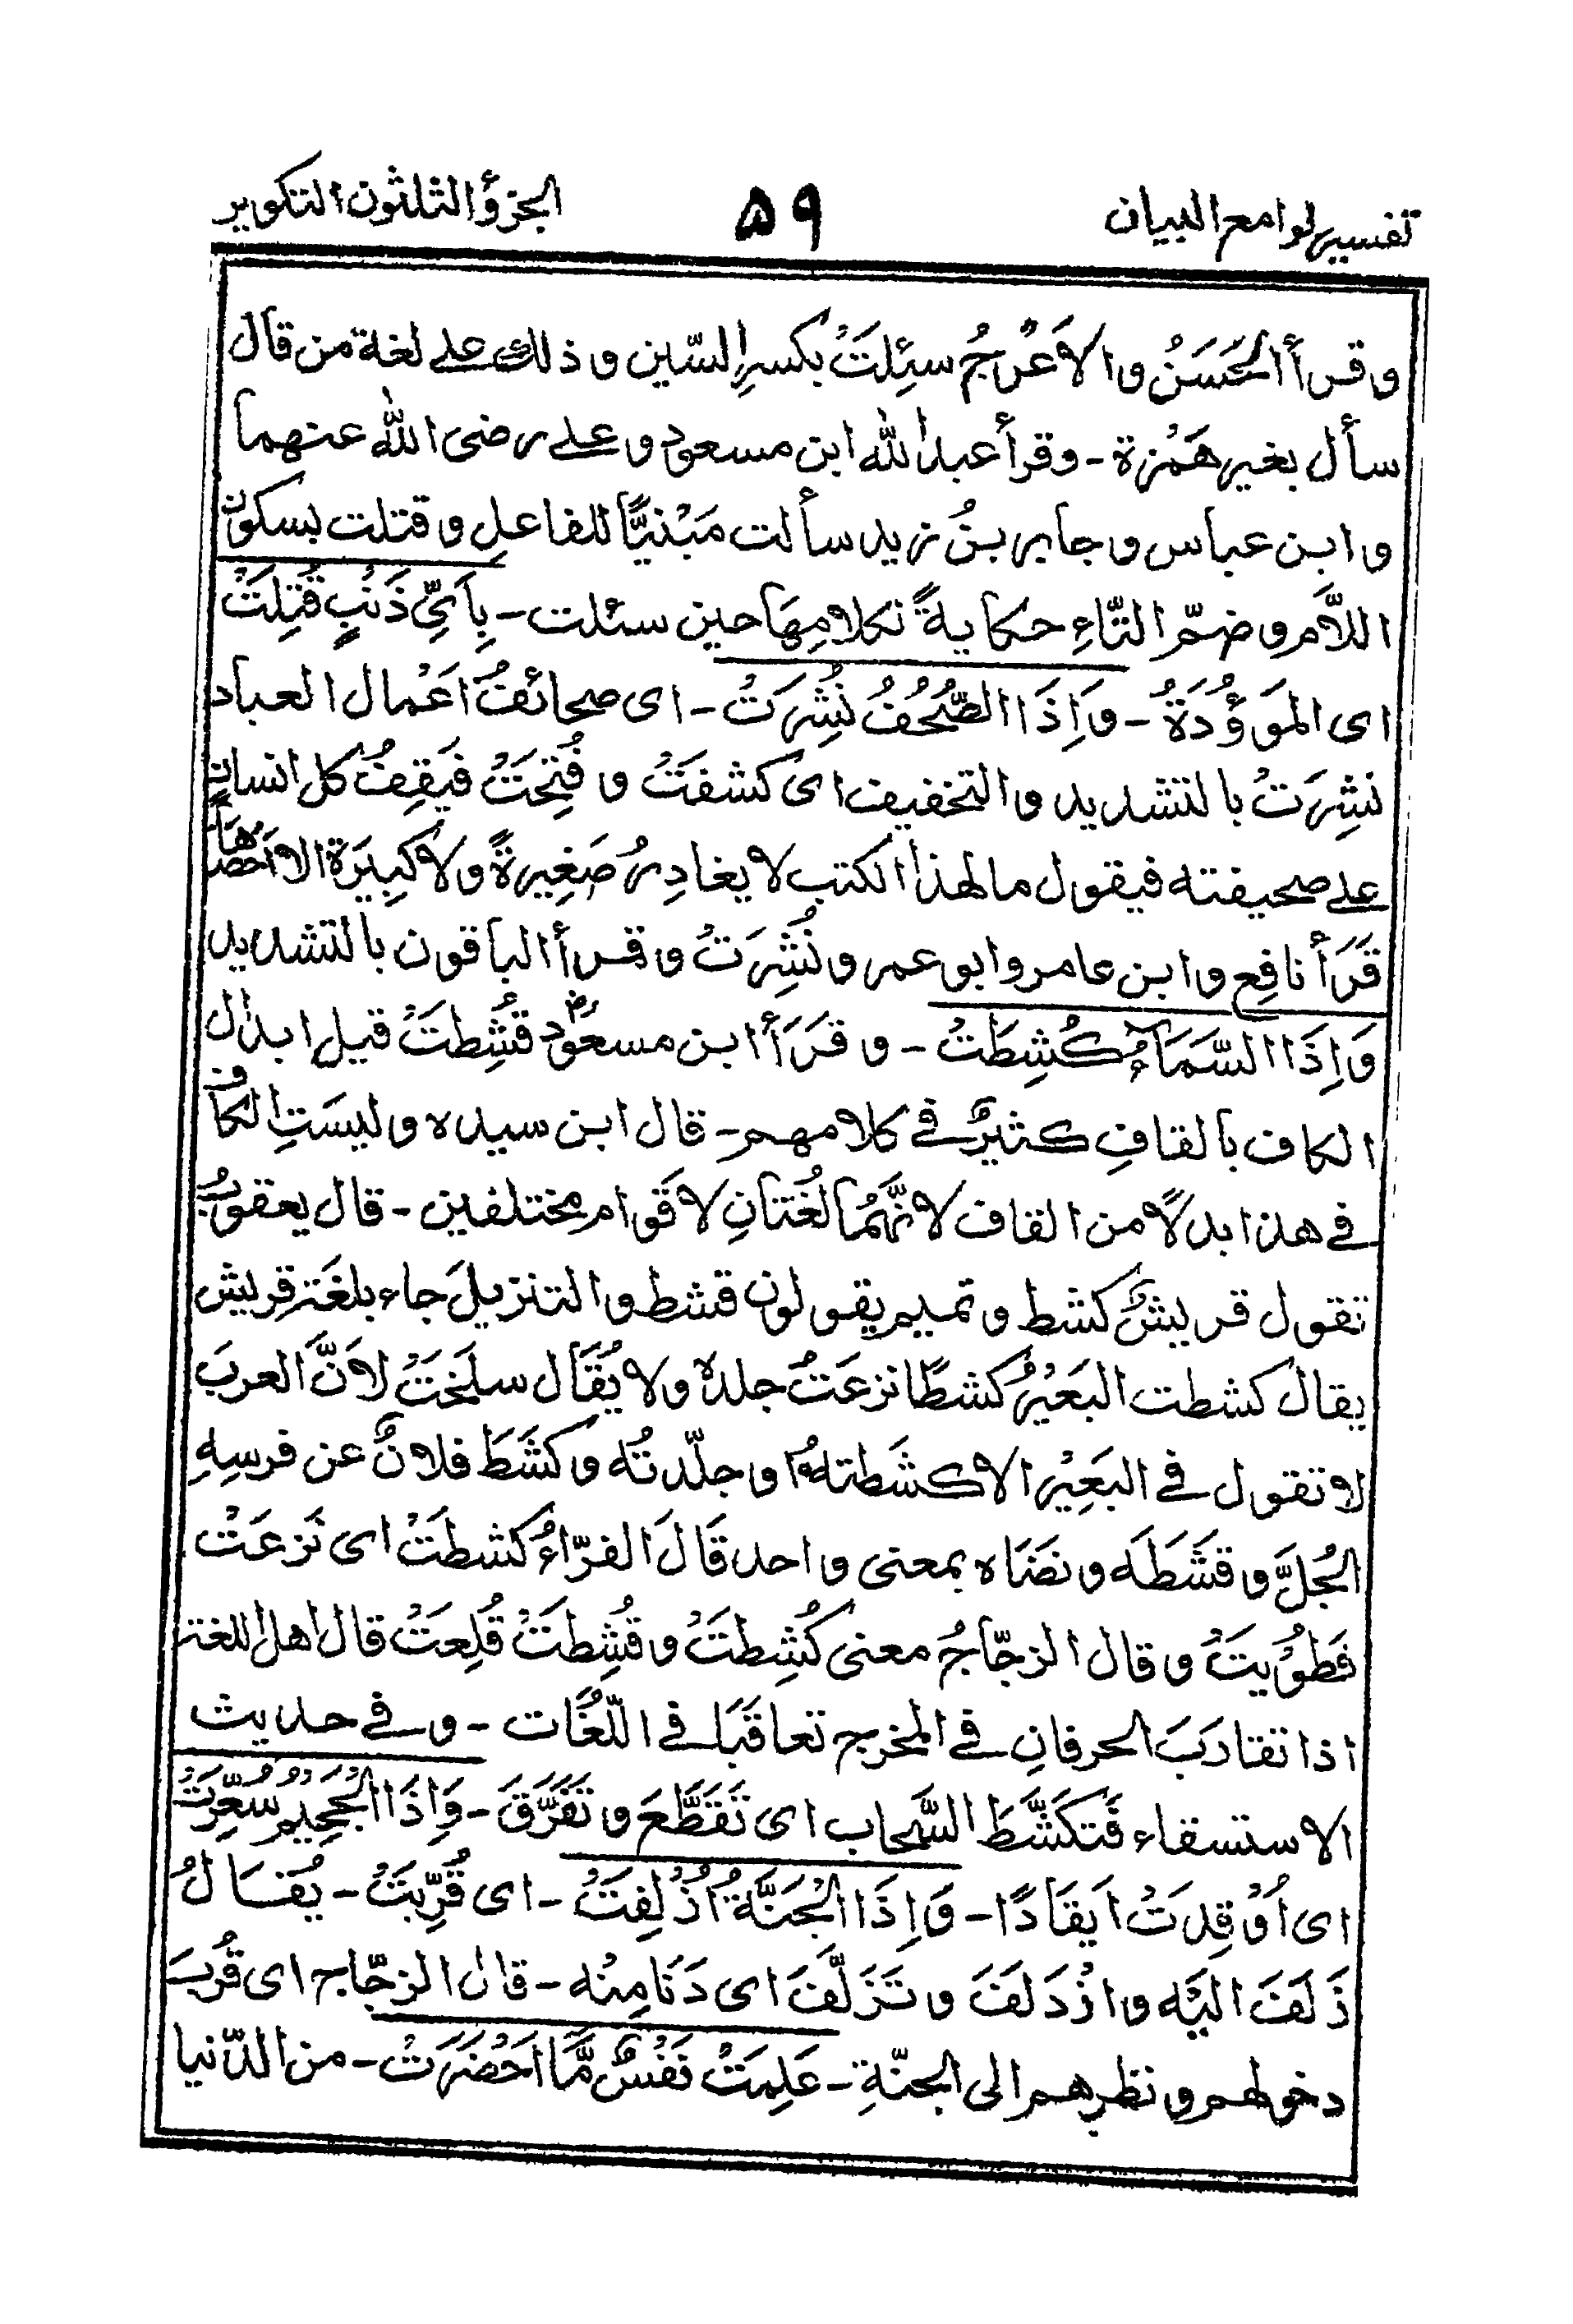 تفسير لوامع البيان ٥٩ الجزؤ الثلثون التكوير
و قرأ الْحَسَنُ و الاَعْرَجُ سئِلَتْ بكسرِ السّين و ذلك على لغة من قال
سأل بغير هَمْزة - و قرأ عبد الله ابن مسعود و على رضى الله عنهما
و ابن عباس و جابر بنُ زيد سألت مَبْنيًّا للفاعل و قتلت بسكون
اللاَّم و ضمّ التّاءِ حكايةً نكلامِهَا حين سئلت - بِاَيِّ ذَنْبٍ قُتِلَتْ
اى المَوَؤُدَةُ - وَاِذَا الصُّحُفُ نُشِرَتْ - اى صحائفُ اَعْمال العباد
نشِرَتْ بالتشديد و التخفيف اى كشفَتْ و فُتِحَتْ فيَقِفُ كل انسان
على صحيفته فيقول مالهذا الكتب لا يغادِرُ صَغِيرةً و لا كَبِيَرَة الا اَحْصٰهَا
قَرَأَ نافِع و ابن عامر و ابو عمر و نُشِرَتْ و قرأ الباقون بالتشديد
وَاِذَا السَّمَآءُ كُشِطَتْ - و قرَأَ ابن مسعود رض قشِطَتْ قيل ابدال
الكاف بالقافِ كثيرٌ فى كلامهم - قال ابن سيده و ليسَتِ الكاف
فى هذا بدلًا من القاف لانَّهُما لُغَتَانِ لاقَوام مختلفين - قال يعقوبُ
تقول قريشٌ كشط و تميم يقولون قشط و التنزيلَ جاء بلغة قريش
يقال كشطت البَعَيْرُ كشطًا نزعَتْ جلده و لا يُقَال سلَخَتْ لاَنَّ العربَ
لا تقول فى البَعِيْر الا كشَطتهُ او جلّدتُه و كشَطَ فلانٌ عن فرسِهِ
الجُلَّ و قشَطَه و نضَاه بمعنى واحد قَالَ الفرّاءُ كشطَتْ اى نَزعَتْ
فَطُوِيَتْ و قال الزجّاجُ معنى كُشِطَتْ و قُشِطَتْ قُلِعَتْ قال اهل اللغة
اذا تقارَبَ الحرفانِ فى المخرج تعاقَبَا فى اللّغَات - و فى حديث
الاستسقاء فَتكَشَّطَ السَّحاب اى تَقَطَّعَ و تَفَرَّقَ - وَاِذَا الْجَحِيْمُ سُعِّرَتْ
اى اُوْقِدَتْ اَيقَادًا - وَاِذَا الْجَنَّةُ اُزْلِفَتْ - اى قُرِّبَتْ - يُقَالُ
زَلَفَ اليْه و ازْدَلَفَ و تَزَلَّفَ اى دَنَا مِنْه - قال الزجّاج اى قُرِبَ
دخولهم و نظرهم الى الجنّةِ - عَلِمَتْ نَفْسٌ مَّا اَحْضَرَتْ - من الدّنيا